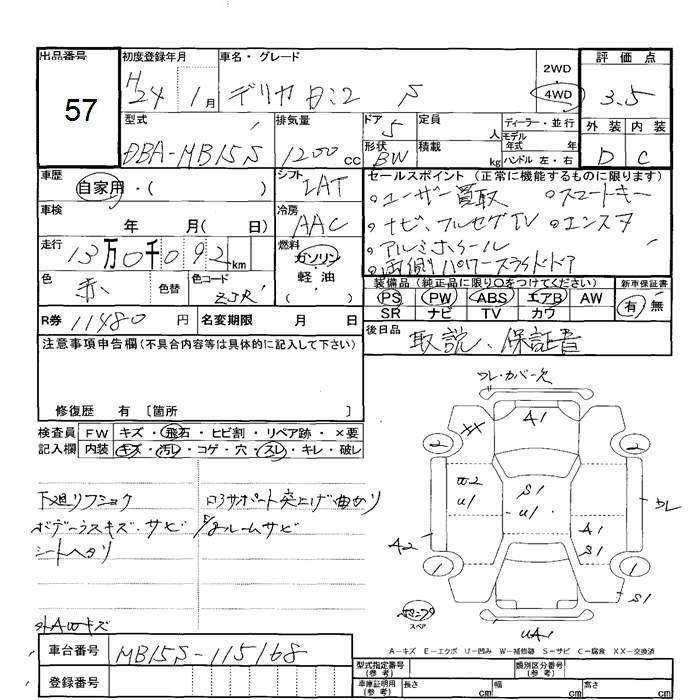 出品番号 初度登録年月 車名・グレード 2WD 評価点
57 H24 1月 デリカ D:2 S 4WD 3.5
型式 排気量 ドア 5 定員 人 ディーラー・並行 外装 内装
DBA-MB15S 1200cc 形状 BW 積載 kg モデル年式 年 ハンドル 左・右 D C
車歴 自家用・( ) シフト IAT セールスポイント (正常に機能するものに限ります)
車検 年 月( 日) 冷房 AAC 。ユーザー買取 。スマートキー
走行 13万0千092km 燃料 ガソリン・軽油 。ナビ、フルセグTV 。エンスタ
。アルミホイール
。両側パワースライドドア
色 赤 色替 色コード ZJR 装備品 (純正品に限り○をつけてください) 新車保証書
PS PW ABS エアB AW 有・無
SR ナビ TV カワ
R券 11480円 名変期限 月 日 後日品 取説、保証書
注意事項申告欄(不具合内容等は具体的に記入して下さい)
修復歴 有 [箇所 ]
検査員 FW キズ・飛石・ヒビ割・リペア跡・×要
記入欄 内装 キズ・汚レ・コゲ・穴・スレ・キレ・破レ
下廻リフショク
ボデーラスキズ・サビ
シートヘタリ
外AWキズ
ロアサポート突上ゲ曲がり
E/gルームサビ
フレ・カバー欠
A1
XX
2 2
W2
U1
S1
U1
フレ
A1
S1
A2
1 1
S1
スペア
UA1
A-キズ E-エクボ U-凹み W-補修跡 S-サビ C-腐食 XX-交換済
車台番号 MB15S-115168
登録番号
型式指定番号(参考) 類別区分番号(参考)
車庫証明用(参考) 長さ cm 幅 cm 高さ cm